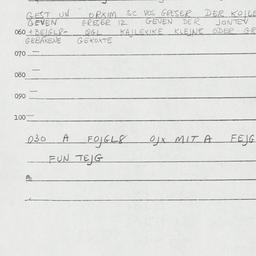 GEST UN DRXIM 3C VOS GRESER DER KOJLE
GEVEN GRESER IZ GEVEN DER JONTEV
060 +BEJGL8- QGL KAJLEKIKE KLEJNE ODER GR
GEBAKENE GEKOXTE
070 —
080 —
090 —
100 —
030 A FOJGL8 OJX MIT A FEJG
FUN TEJG